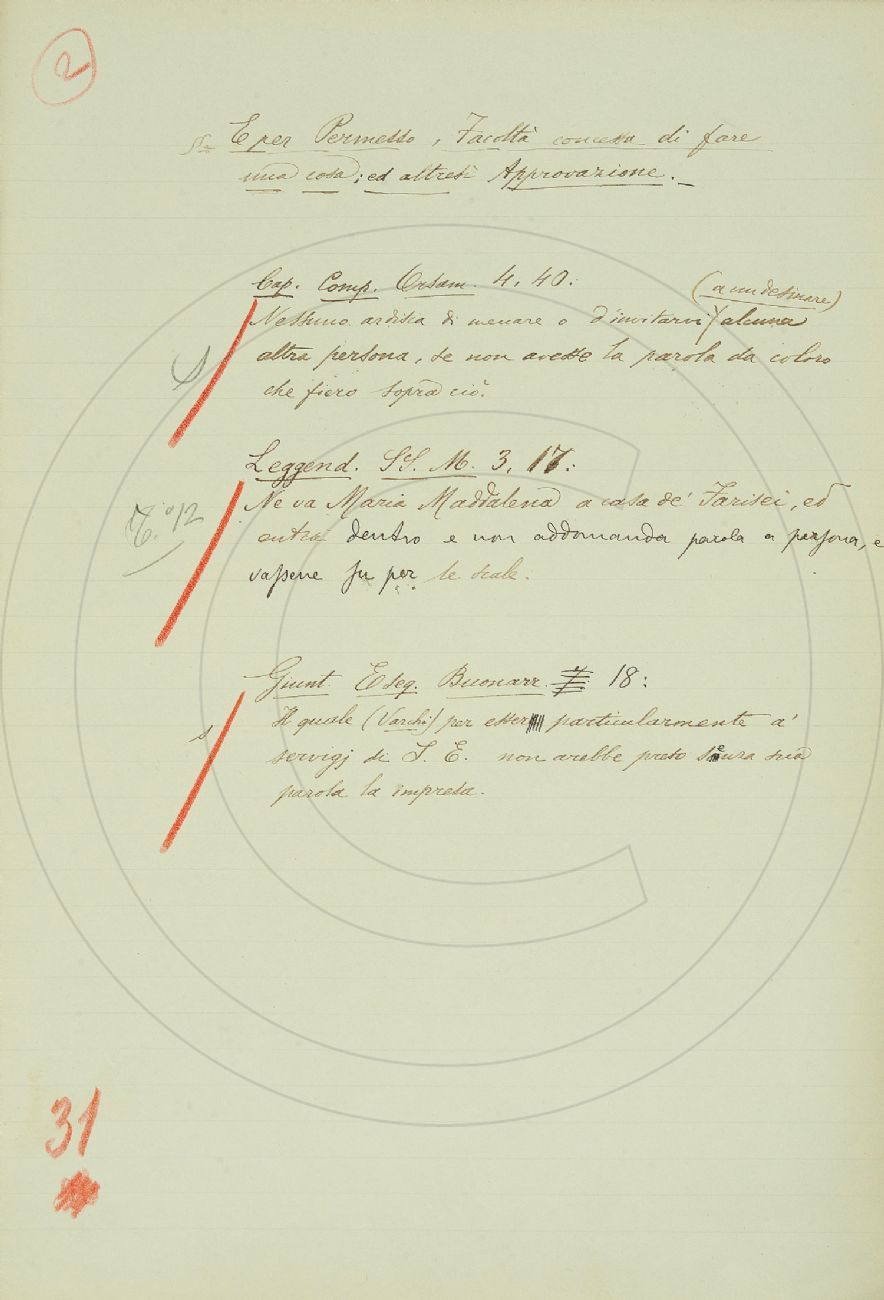 2
E per Permesso, Facoltà concessa di fare
una cosa; ed altresì Approvazione.
Cap. Comp. Orsam. 4. 40:
(a un desinare)
Nessuno ardisca di menare o d'invitarvi alcuna
altra persona, se non avesse la parola da coloro
che fiero sopra ciò.
Leggend. SS. M. 3, 17:
Ne va Maria Maddalena a casa de' Farisei, ed
entra dentro e non addomanda parola a persona, e
vassene su per le scale.
Giunt. Eseq. Buonarr. 18:
Il quale (Varchi) per esser particularmente a'
servigj di S. E. non arebbe preso senza sua
parola la impresa.
31